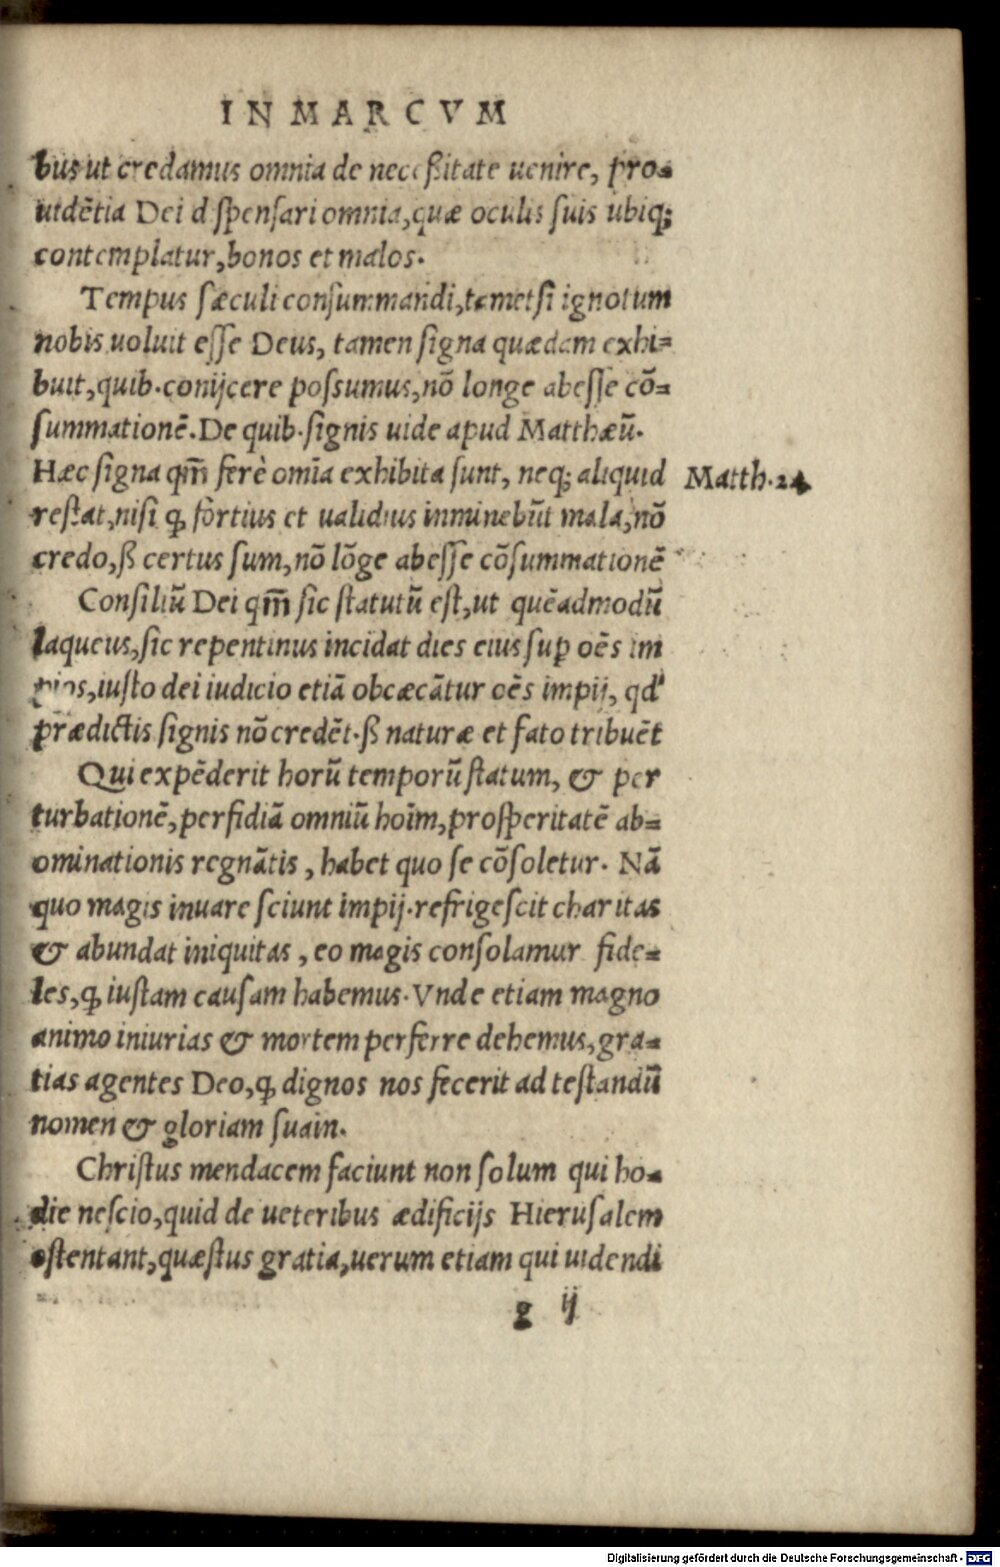 IN MARCVM
bus ut credamus omnia de neceßitate uenire, pro-
uidẽtia Dei d spensari omnia, quæ oculis suis ubiq;
contemplatur, bonos et malos.
Tempus sæculi consummandi, tametsi ignotum
nobis uoluit esse Deus, tamen signa quædam exhi-
buit, quib. conijcere possumus, nõ longe abesse cõ-
summationẽ. De quib. signis uide apud Matthæũ.
Hæc signa qm̃ ferè omĩa exhibita sunt, neq; aliquid
Matth. 24
restat, nisi ꝙ fortius et ualidius imminebũt mala, nõ
credo, ß certus sum, nõ lõge abesse cõsummationẽ
Consiliũ Dei qm̃ sic statutũ est, ut quẽadmodũ
laqueus, sic repentinus incidat dies eius sup oẽs im
pios, iusto dei iudicio etiã obcæcãtur oẽs impij, qd'
prædictis signis nõ credẽt. ß naturæ et fato tribuẽt
Qui expẽderit horũ temporũ statum, & per
turbationẽ, perfidiã omniũ hoĩm, prosperitatẽ ab-
ominationis regnãtis, habet quo se cõsoletur. Nã
quo magis inuare sciunt impij. refrigescit charitas
& abundat iniquitas, eo magis consolamur fide-
les, ꝙ iustam causam habemus. Vnde etiam magno
animo iniurias & mortem perferre debemus, gra-
tias agentes Deo, ꝙ dignos nos fecerit ad testandũ
nomen & gloriam suam.
Christus mendacem faciunt non solum qui ho-
die nescio, quid de ueteribus ædificijs Hierusalem
ostentant, quæstus gratia, uerum etiam qui uidendi
g ij
Digitalisierung gefördert durch die Deutsche Forschungsgemeinschaft - DFG